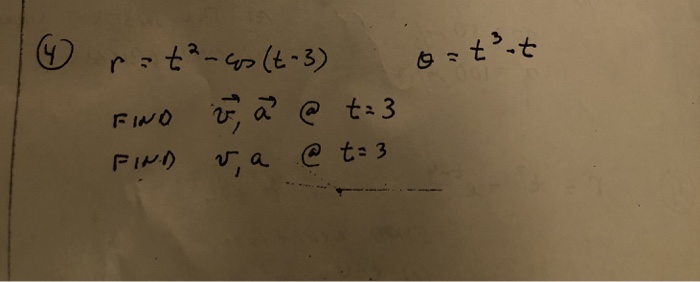 ④ r = t² - cos(t-3) θ = t³ - t
FIND v⃗, a⃗ @ t=3
FIND v, a @ t=3